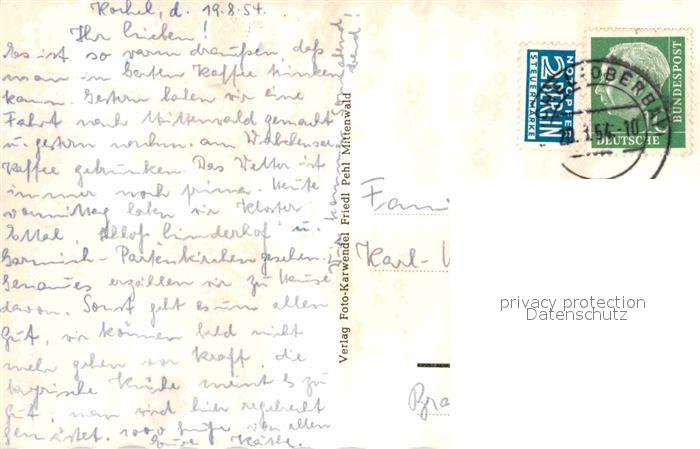 Kochel, d. 19.8.54.
Ihr Lieben!
Es ist so warm draußen, daß
man im Garten Kaffee trinken
kann. Gestern haben wir eine
Fahrt nach Mittenwald gemacht
u. gestern nachm. am Walchensee
Kaffee getrunken. Das Wetter ist
immer noch prima. Heute
vormittag haben wir Kloster
Ettal, Schloß Linderhof u.
Garmisch-Partenkirchen gesehen.
Genaues erzählen wir zu Hause
davon. Sonst geht es uns allen
gut, wir können bald nicht
mehr gehen vor Kraft, die
bayrische Küche meint es zu
gut, man wird hier regelrecht
gemästet. 1000 Grüße von allen
Eure Käthe.
Wir kommen
abend
Verlag Foto-Karwendel Friedl Pehl Mittenwald
NOTOPFER
2 BERLIN
STEUERMARKE
DEUTSCHE
BUNDESPOST
10
OBERB
54-10
Fami
Karl-
Bra
privacy protection
Datenschutz